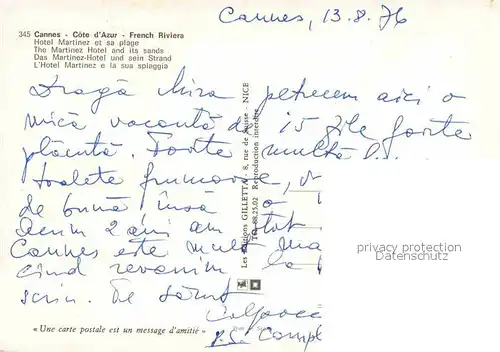 Cannes, 13.8.76
345 Cannes - Côte d'Azur - French Riviera
Hotel Martinez et sa plage
The Martinez Hotel and its sands
Das Martinez-Hotel und sein Strand
L'Hotel Martinez e la sua spiaggia
Dragă Mira petrecem aici o
mică vacanță de 15 zile foarte
plăcută. Foarte multă l...
toalete frumoase,
de bună însă o
Acum 2 ani am stat
Cannes este mult ma
cînd revenim la
scriu. Te sărut
P.S. Compl
Les Editions GILLETTA - 8, rue de Suisse - NICE
Tél. 88.25.02 Reproduction interdite
privacy protection
Datenschutz
« Une carte postale est un message d'amitié »